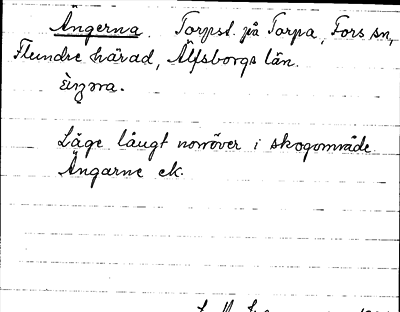 Ängerna. Torpst. på Torpa, Fors sn,
Flundre härad, Älfsborgs län.
Läge långt norröver i skogområde.
Ängarne ek.